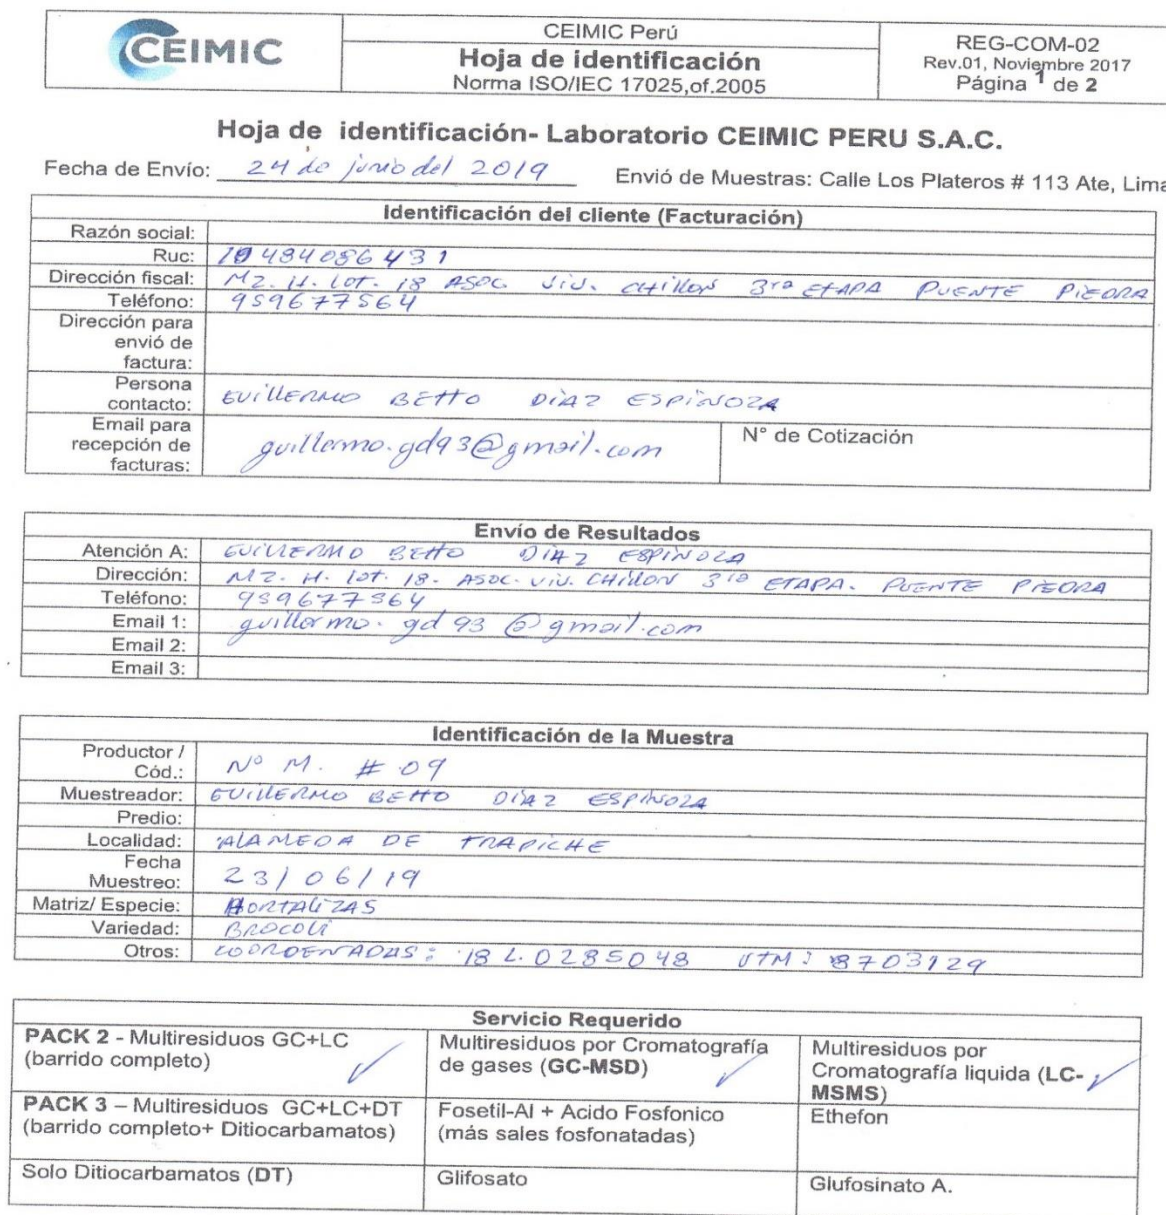 CEIMIC
CEIMIC Perú
Hoja de identificación
Norma ISO/IEC 17025,of.2005
REG-COM-02
Rev.01, Noviembre 2017
Página 1 de 2
Hoja de identificación- Laboratorio CEIMIC PERU S.A.C.
Fecha de Envío: 24 de junio del 2019 Envió de Muestras: Calle Los Plateros # 113 Ate, Lima
Identificación del cliente (Facturación)
Razón social:
Ruc: 10484086431
Dirección fiscal: MZ. H. LOT. 18 ASOC. VIV. CHILLON 3ra ETAPA PUENTE PIEDRA
Teléfono: 959677564
Dirección para
envió de
factura:
Persona
contacto: GUILLERMO BETTO DIAZ ESPINOZA
Email para
recepción de
facturas: guillermo.gd93@gmail.com
N° de Cotización
Envío de Resultados
Atención A: GUILLERMO BETTO DIAZ ESPINOZA
Dirección: MZ. H. LOT. 18. ASOC. VIV. CHILLON 3ra ETAPA. PUENTE PIEDRA
Teléfono: 959677564
Email 1: guillermo.gd93@gmail.com
Email 2:
Email 3:
Identificación de la Muestra
Productor /
Cód.: N° M. # 09
Muestreador: GUILLERMO BETTO DIAZ ESPINOZA
Predio:
Localidad: ALAMEDA DE TRAPICHE
Fecha
Muestreo: 23/06/19
Matriz/ Especie: HORTALIZAS
Variedad: BROCOLI
Otros: COORDENADAS: 18 L. 0285048 UTM: 8703129
Servicio Requerido
PACK 2 - Multiresiduos GC+LC
(barrido completo) ✓
Multiresiduos por Cromatografía
de gases (GC-MSD) ✓
Multiresiduos por
Cromatografía liquida (LC-
MSMS) ✓
PACK 3 – Multiresiduos GC+LC+DT
(barrido completo+ Ditiocarbamatos)
Fosetil-Al + Acido Fosfonico
(más sales fosfonatadas)
Ethefon
Solo Ditiocarbamatos (DT)
Glifosato
Glufosinato A.